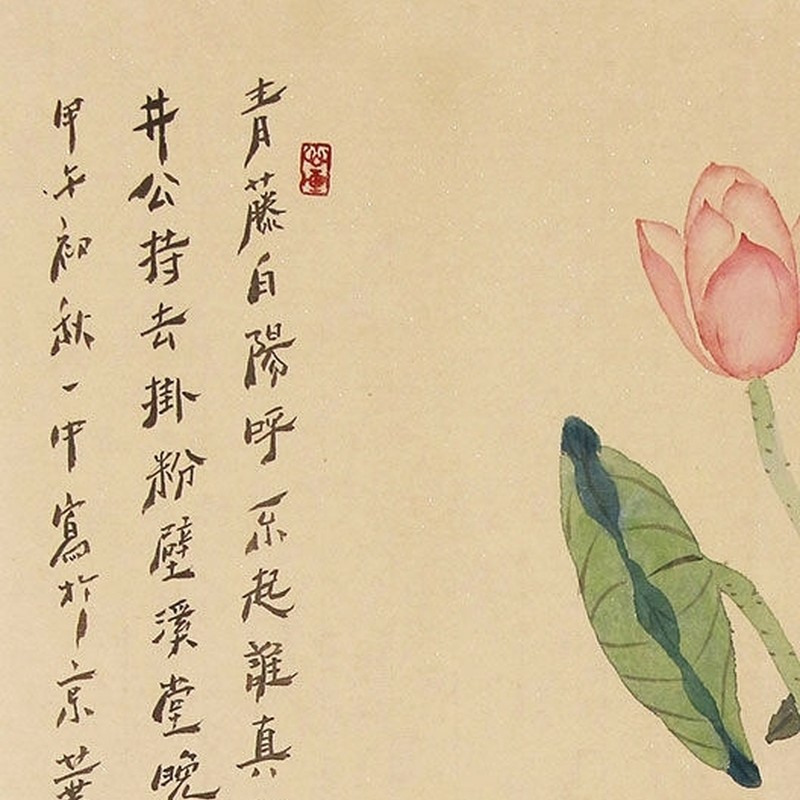 青藤白陽呼不起誰真
井公持去掛粉壁溪堂晚
甲午初秋一中寫於京華